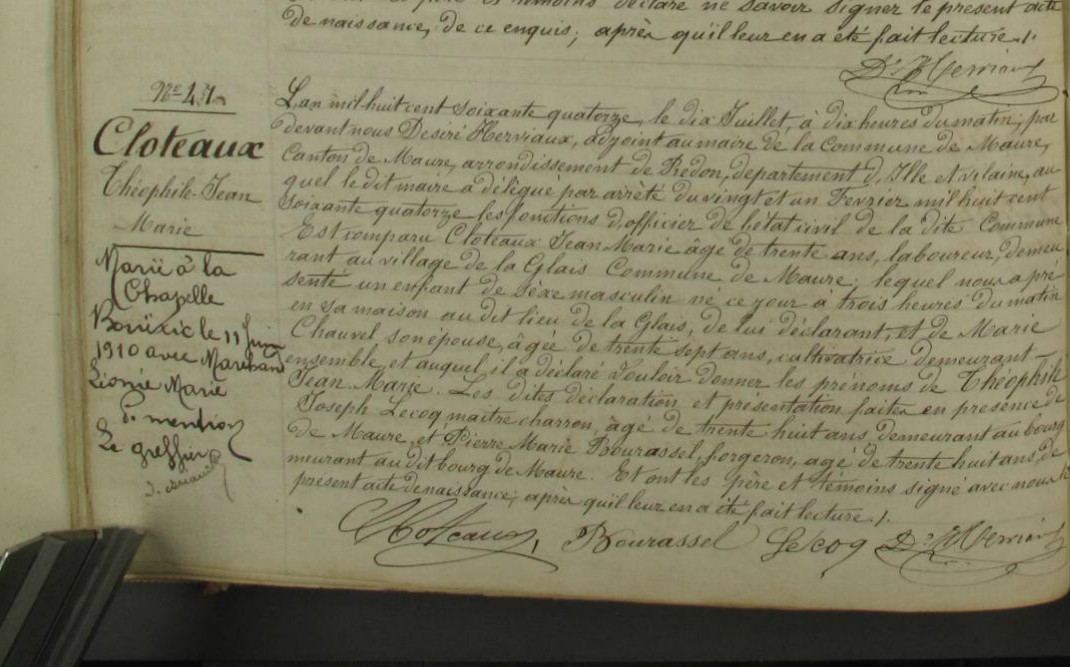 témoins déclaré ne savoir signer le présent acte
de naissance, de ce enquis; après qu'il leur en a été fait lecture ./.
Dré Herviaux
No 47
Cloteaux
Théophile Jean
Marie
Marié à la
Chapelle
Bouëxic le 11 Juin
1910 avec Marchand
Léonie Marie
d. mention
Le greffier
L'an mil huit cent soixante quatorze, le dix Juillet, à dix heures du matin, par
devant nous Desiré Herviaux, adjoint au maire de la Commune de Maure,
Canton de Maure, arrondissement de Rédon, département d'Ille et vilaine, au
quel le dit maire a délégué par arrêté du vingt et un Fevrier mil huit cent
soixante quatorze les fonctions d'officier de l'état civil de la dite Commune
Est comparu Cloteaux Jean Marie âgé de trente ans, laboureur, demeu
rant au village de la Glais Commune de Maure; lequel nous a pré
senté un enfant de sèxe masculin né ce jour à trois heures du matin
en sa maison au dit lieu de la Glais, de lui déclarant, et de Marie
Chauvel son épouse, âgée de trente sept ans, cultivatrice demeurant
ensemble et auquel il a déclaré vouloir donner les prénoms de Théophile
Jean Marie. Les dites déclaration et présentation faites en présence de
Joseph Lecoq maitre charron, âgé de trente huit ans, demeurant au bourg
de Maure, et Pierre Marie Bourassel, forgeron, agé de trente huit ans, de
meurant au dit bourg de Maure. Et ont les père et témoins signé avec nous le
présent acte de naissance; après qu'il leur en a été fait lecture ./.
Cloteaux, Bourassel Lecoq Dré Herviaux